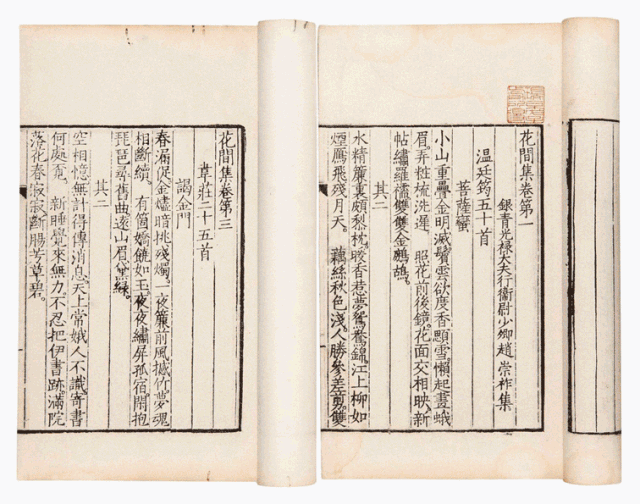 花間集卷第一
銀青光祿大夫行衛尉少卿趙崇祚集
溫廷筠五十首
菩薩蠻
小山重疊金明滅鬢雲欲度香顋雪懶起畫蛾
眉弄粧梳洗遲 照花前後鏡花面交相映新
帖繡羅襦雙雙金鷓鴣
其二
水精簾裏頗黎枕暖香惹夢鴛鴦錦江上柳如
煙鴈飛殘月天 藕絲秋色淺人勝參差剪雙
花間集卷第三
韋莊二十五首
謁金門
春漏促金燼暗挑殘燭一夜簾前風撼竹夢魂
相斷續 有箇嬌饒如玉夜夜繡屏孤宿閑抱
琵琶尋舊曲遠山眉黛綠
其二
空相憶無計得傳消息天上常娥人不識寄書
何處覓 新睡覺來無力不忍把伊書跡滿院
落花春寂寂斷腸芳草碧